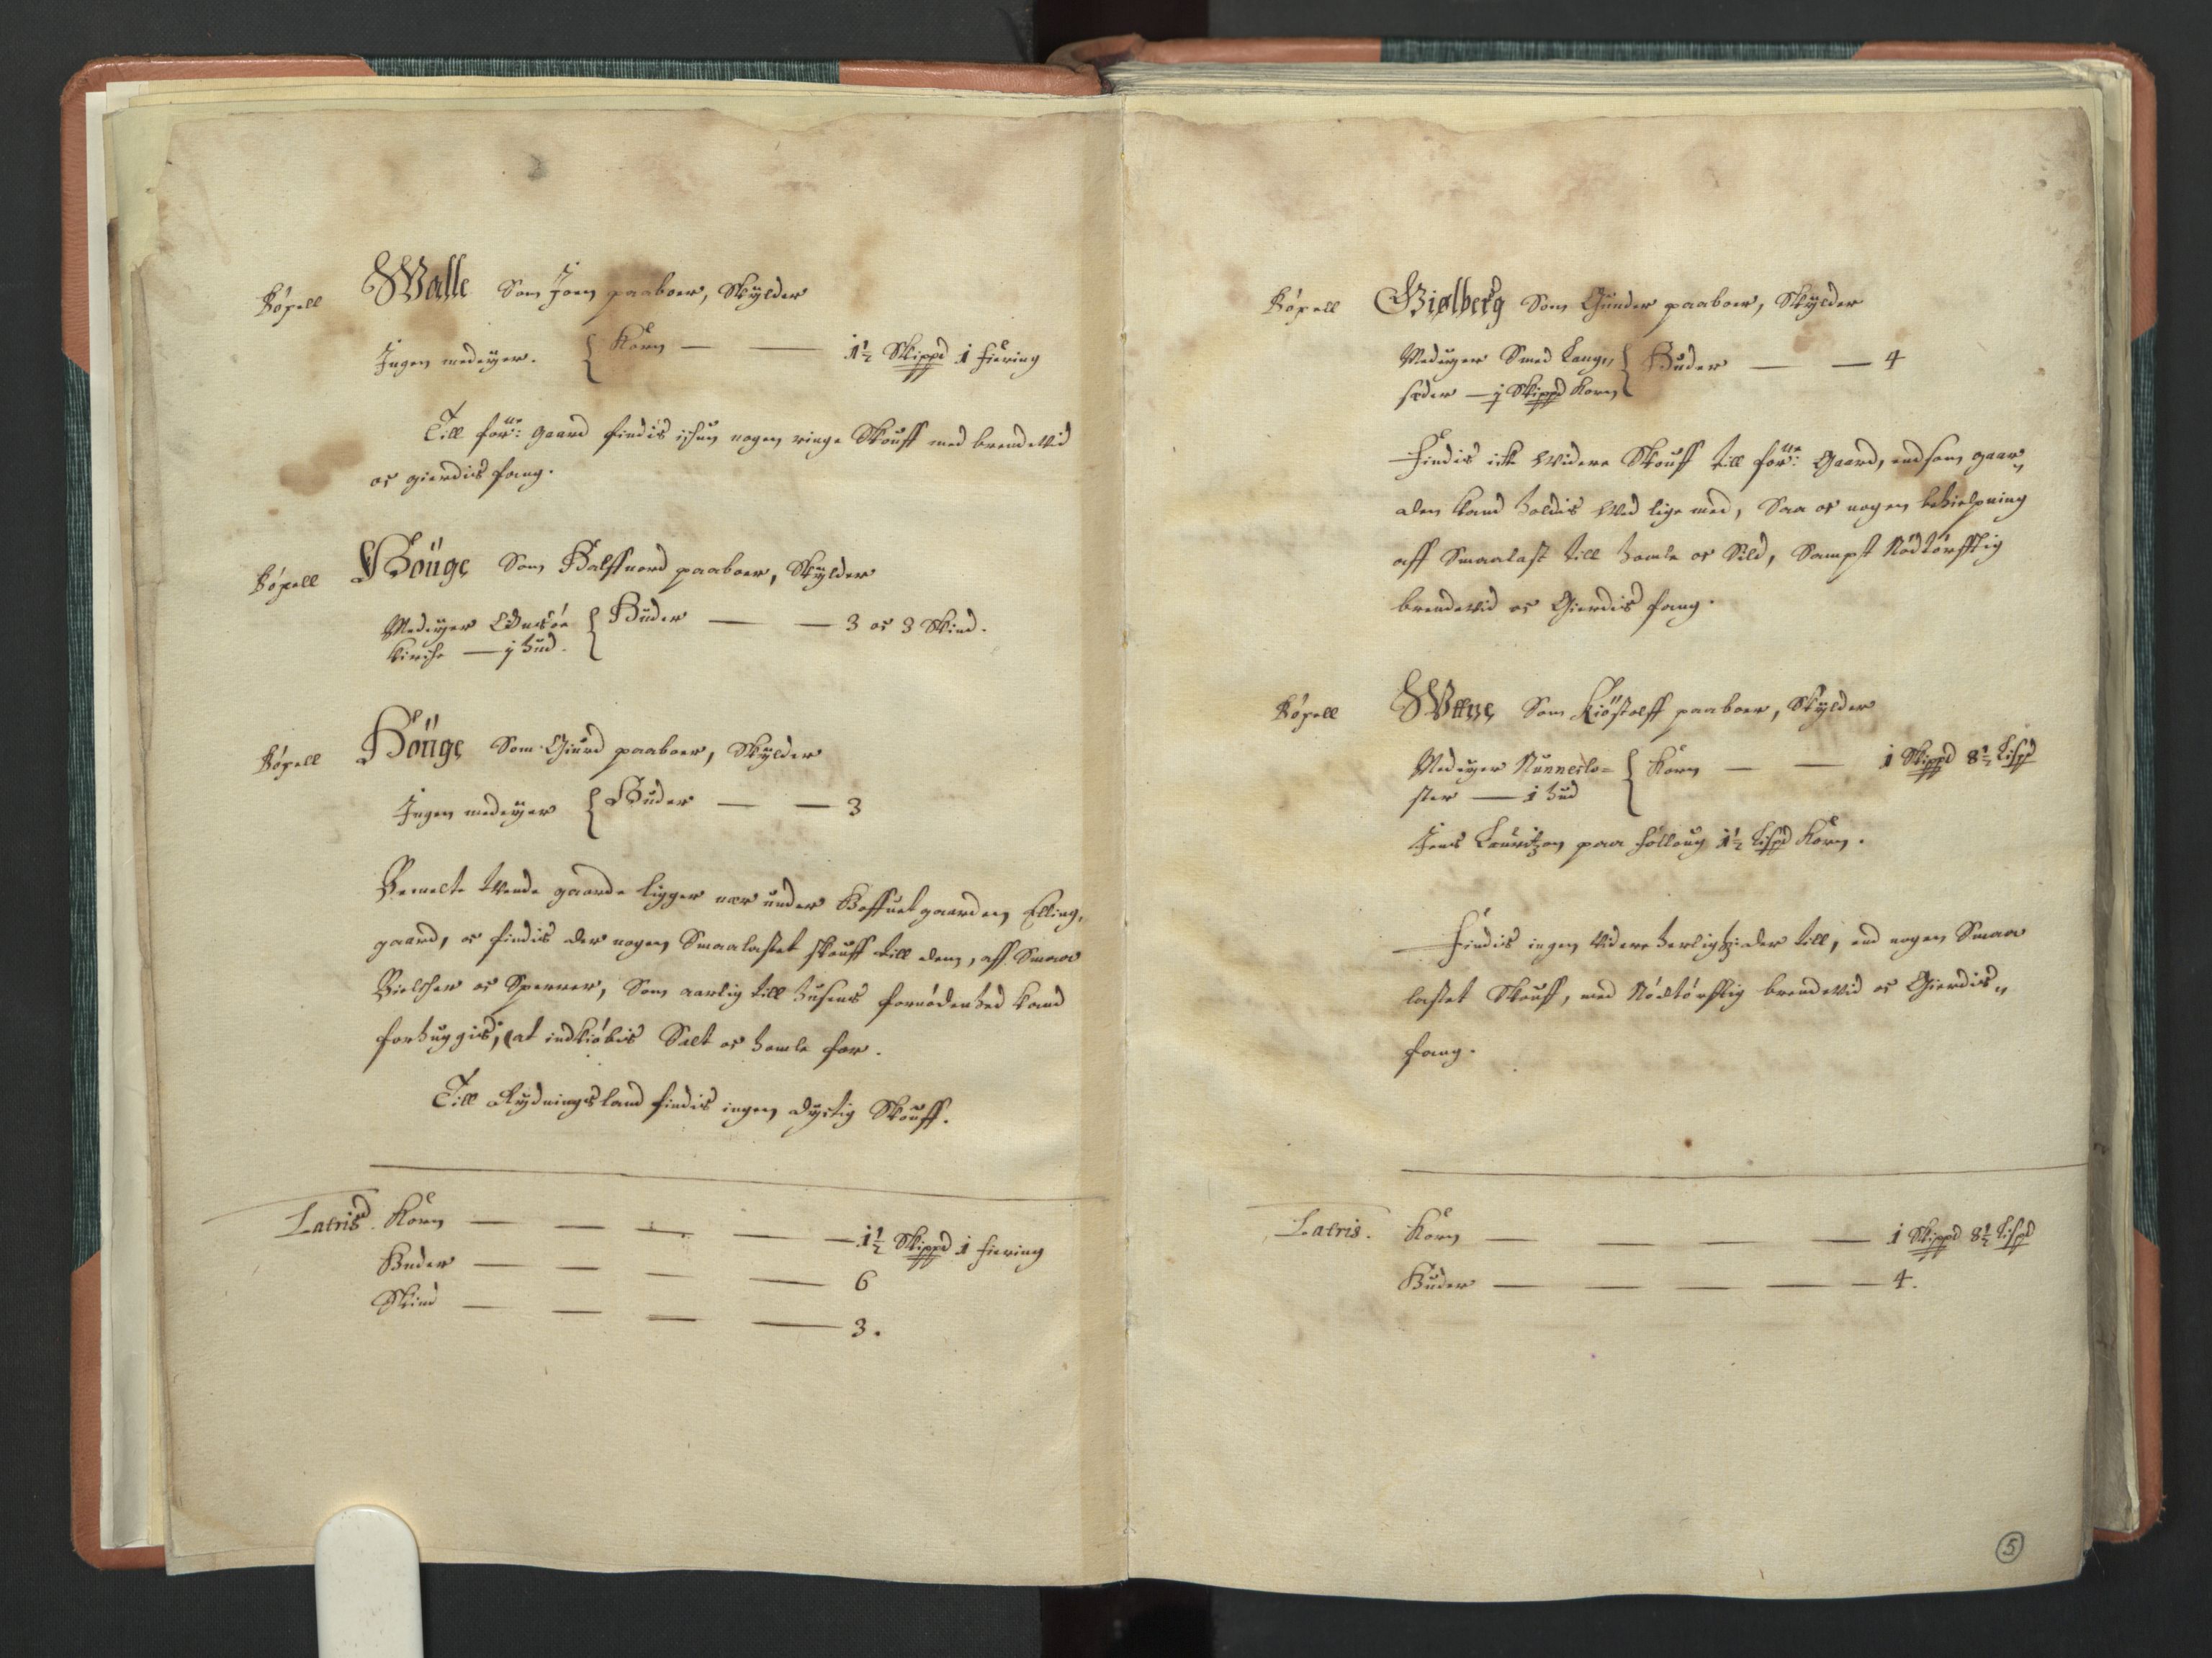 Kópell Walle Som Joen paaboer, Skÿlder
Ingen medeÿer. { Korn — — 1½ Skippd 1 fiering
Till forne: gaard findis ichun nogen ringe Skouff med brendeVid
oc gierdisfang.
Kópell Houge Som Halffuord paaboer, Skÿlder
Medeÿer Kirche — j hud. { Huder — — 3 oc 3 Skind.
Kópell Houge Som Giurd paaboer, Skÿlder
Ingen medeÿer { Huder — — 3
Bemelte tVende gaarde ligger nær under Hoffuetgaarden Elling,
gaard, oc findis der nogen Smaalastet skouff till dem, aff Smaa
Bielcher oc Sperrer, Som aarlig till husens fornódenhed kand
forhuggis, at indkióbis Salt oc homle for.
Till Rÿdningsland findis ingen dÿctig Skouff.
Lateris. Korn — — — — 1½ Skippd 1 fiering
Huder — — — — 6
Skind — — — — 3.
Kópell Giølberg Som Gunder paaboer, Skÿlder
Medeÿger Smed Lang„ { Huder — — 4
sæder — j Skippd Korn
Findis icke Videre Skouff till forne: Gaard, end som gaar„
den kand holdis Ved lige med, Saa oc nogen behielpning
aff Smaalast till homle oc Sild, Sampt Nódtórfftig
brendeVid oc Gierdisfang.
Kópell Som Kióstolff paaboer, Skÿlder
Medeÿger Nunneclo= { Korn — — 1 Skippd 8½ Lispd
ster — 1 hud
Jens Lauritzen paa Hólloug 1½ Lispd Korn.
Findis ingen Videre herligheder till, end nogen Smaa
lastet Skouff, med Nódtórfftig brendeVid oc Gierdis„
fang.
Lateris. Korn — — — — 1 Skippd 8½ Lispd
Huder — — — — 4.
5